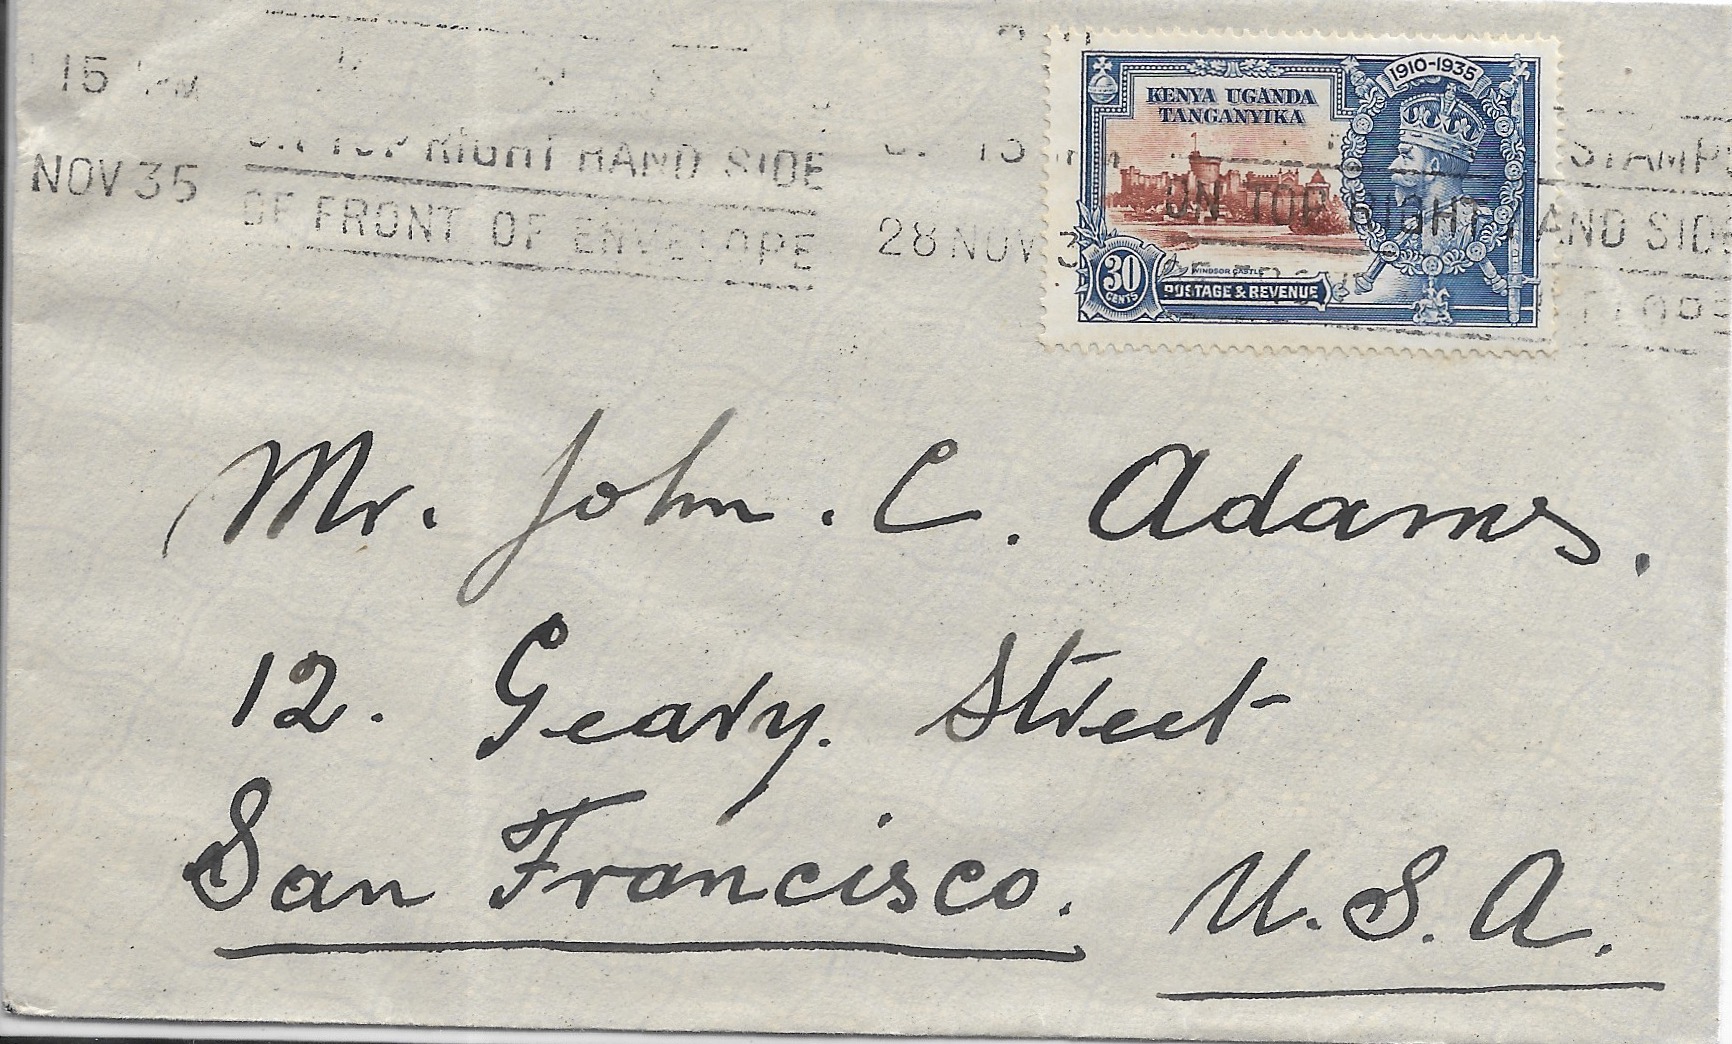 15 PM
NOV 35
ON TOP RIGHT HAND SIDE
OF FRONT OF ENVELOPE
15 PM
28 NOV 3
STAMPS
ON TOP RIGHT HAND SIDE
1910-1935
KENYA UGANDA
TANGANYIKA
WINDSOR CASTLE
30
CENTS
POSTAGE & REVENUE
Mr. John. C. Adams.
12. Geary. Street
San Francisco. U.S.A.